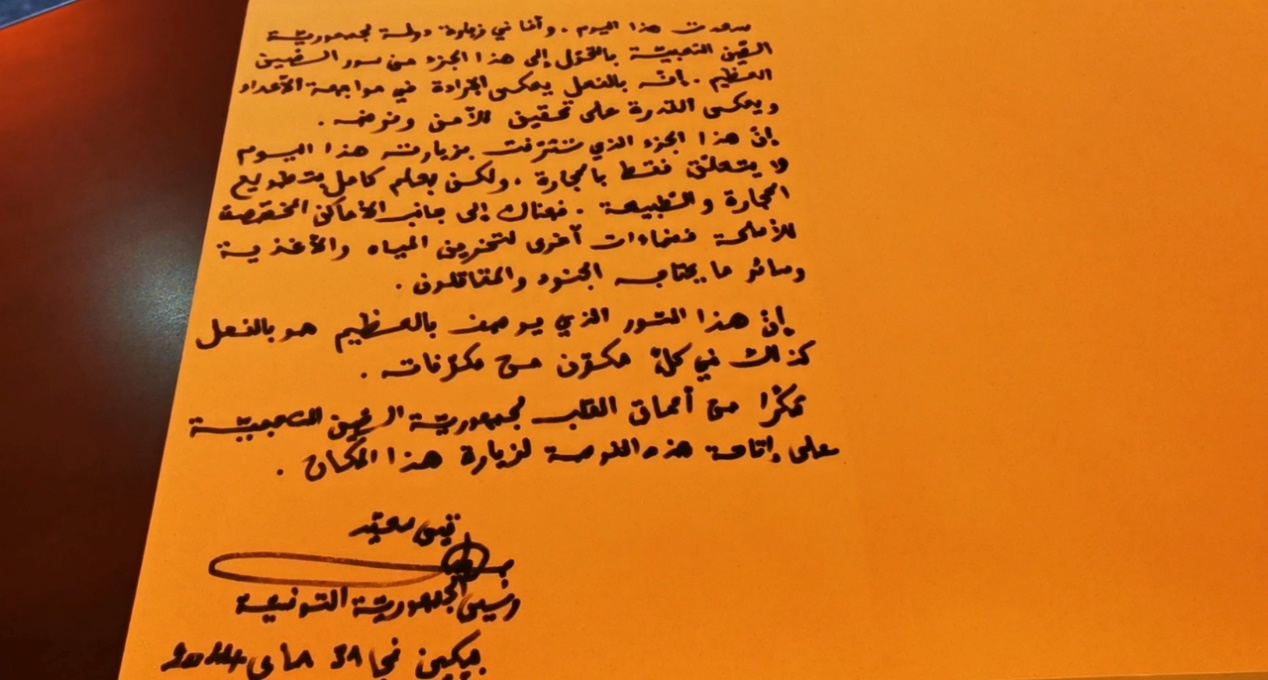 سعدت هذا اليوم. وأنا في زيارة دولة لجمهوريّة
الصّين الشعبيّة بالتحوّل إلى هذا الجزء من سور الصّين
العظيم. إنّه بالفعل يعكس الإرادة في مواجهة الأعداء
ويعكس القدرة على تحقيق الأمن وفرضه.
إنّ هذا الجزء الذي تشرّفت بزيارته هذا اليوم
لا يتعلّق فقط بالحجارة. ولكن بعلم كامل بتطويع
الحجارة والطبيعة. فهناك إلى جانب الأماكن المخصّصة
للأسلحة فضاءات أخرى لتخزين المياه والأغذية
وسائر ما يحتاجه الجنود والمقاتلون.
إنّ هذا السّور الذي يوصف بالعظيم هو بالفعل
كذلك في كلّ مكوّن من مكوّناته.
شكرًا من أعماق القلب لجمهوريّة الصّين الشعبيّة
على إتاحة هذه الفرصة لزيارة هذا المكان.
قيس سعيّد
رئيس الجمهوريّة التونسية
بيكين في 31 ماي